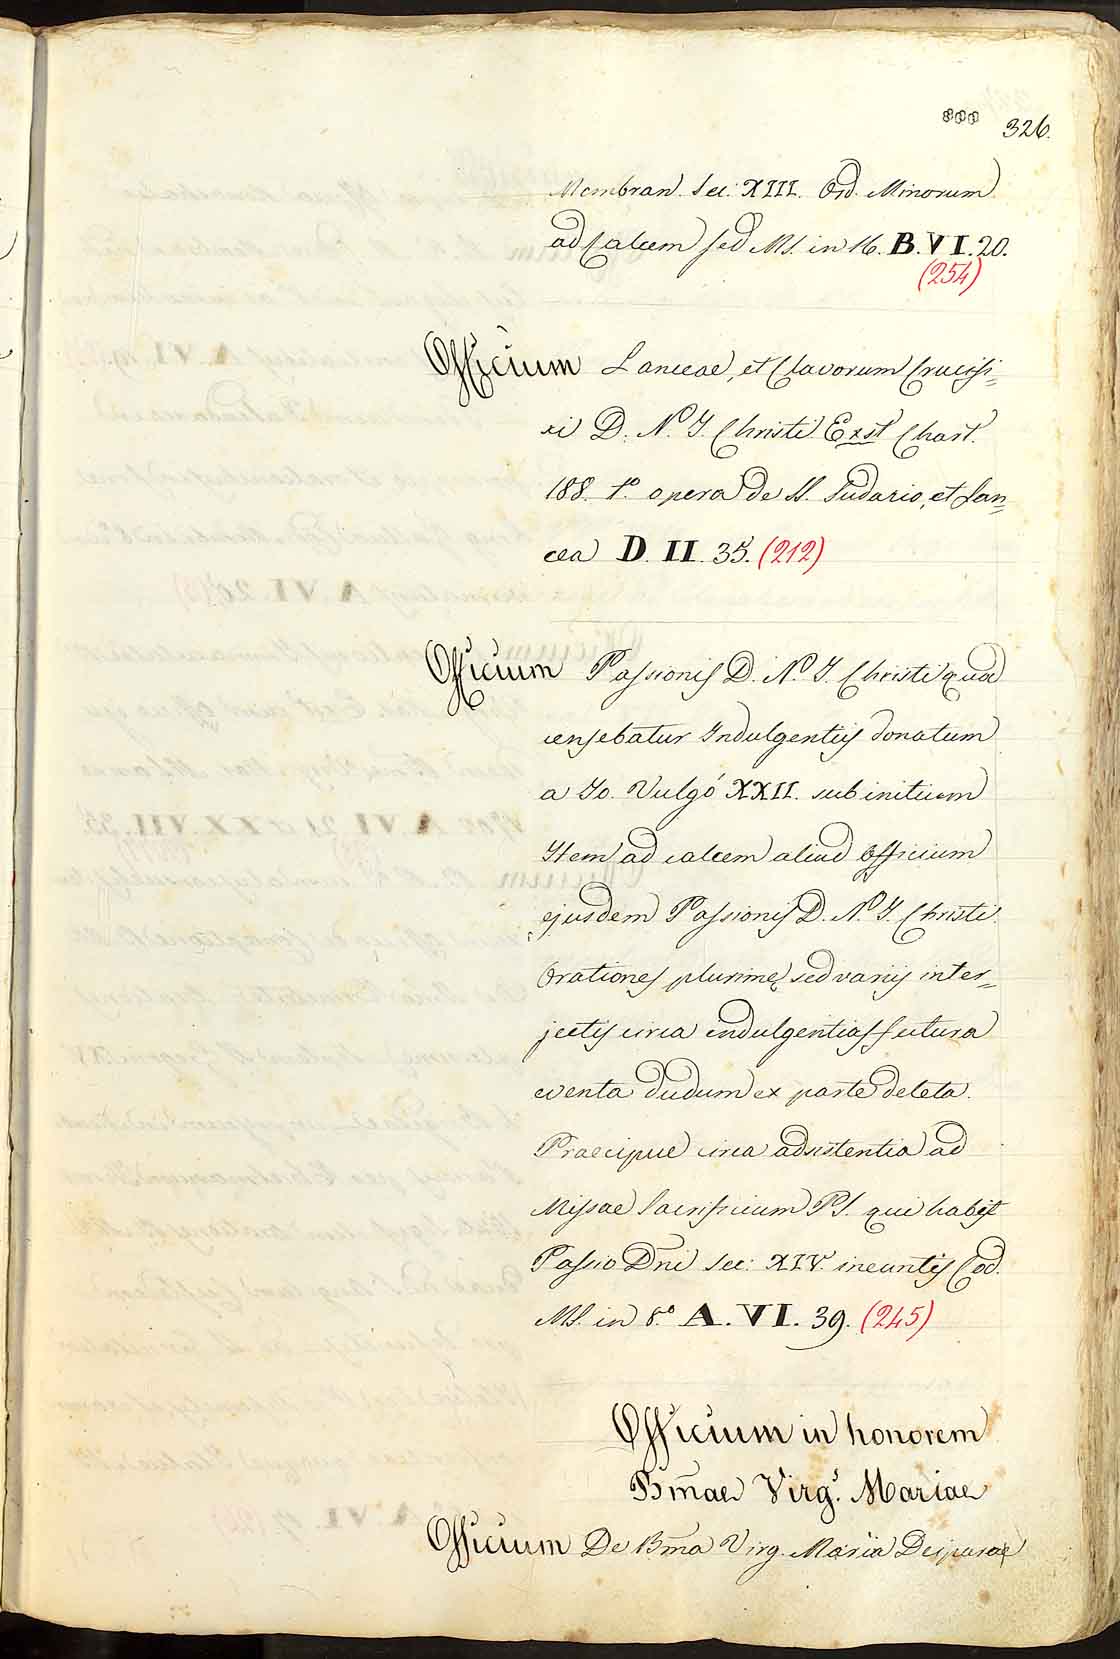 326.
Membran. Sec: XIII. Ord. Minorum
ad Calcem sed MS. in 16. B. VI. 20.
(254)
Officium Lanceae, et Clavorum Crucifi=
xi D. N. J. Christi. Exst Chart.
188. to opera de SS. Sudario, et Lan=
cea D. II. 35. (212)
Officium Passionis D. N. J. Christi quod
censebatur Indulgentiis donatum
a Jo. Vulgó XXII. sub initium
Item ad calcem aliud Officium
ejusdem Passionis D. N. J. Christi.
Orationes plurime, sed variis inter=
jectis circa indulgentias futura
eventa dudum ex parte deleta.
Praecipue circa adsistentia ad
Missae Sacrificium PS. qui habet
Passio Dni Sec: XIV. ineuntis Cod.
MS. in 8.o A. VI. 39. (245)
Officium in honorem
Bmae Virg.s Mariae
Officium De Bma Virg. Maria Deiparae